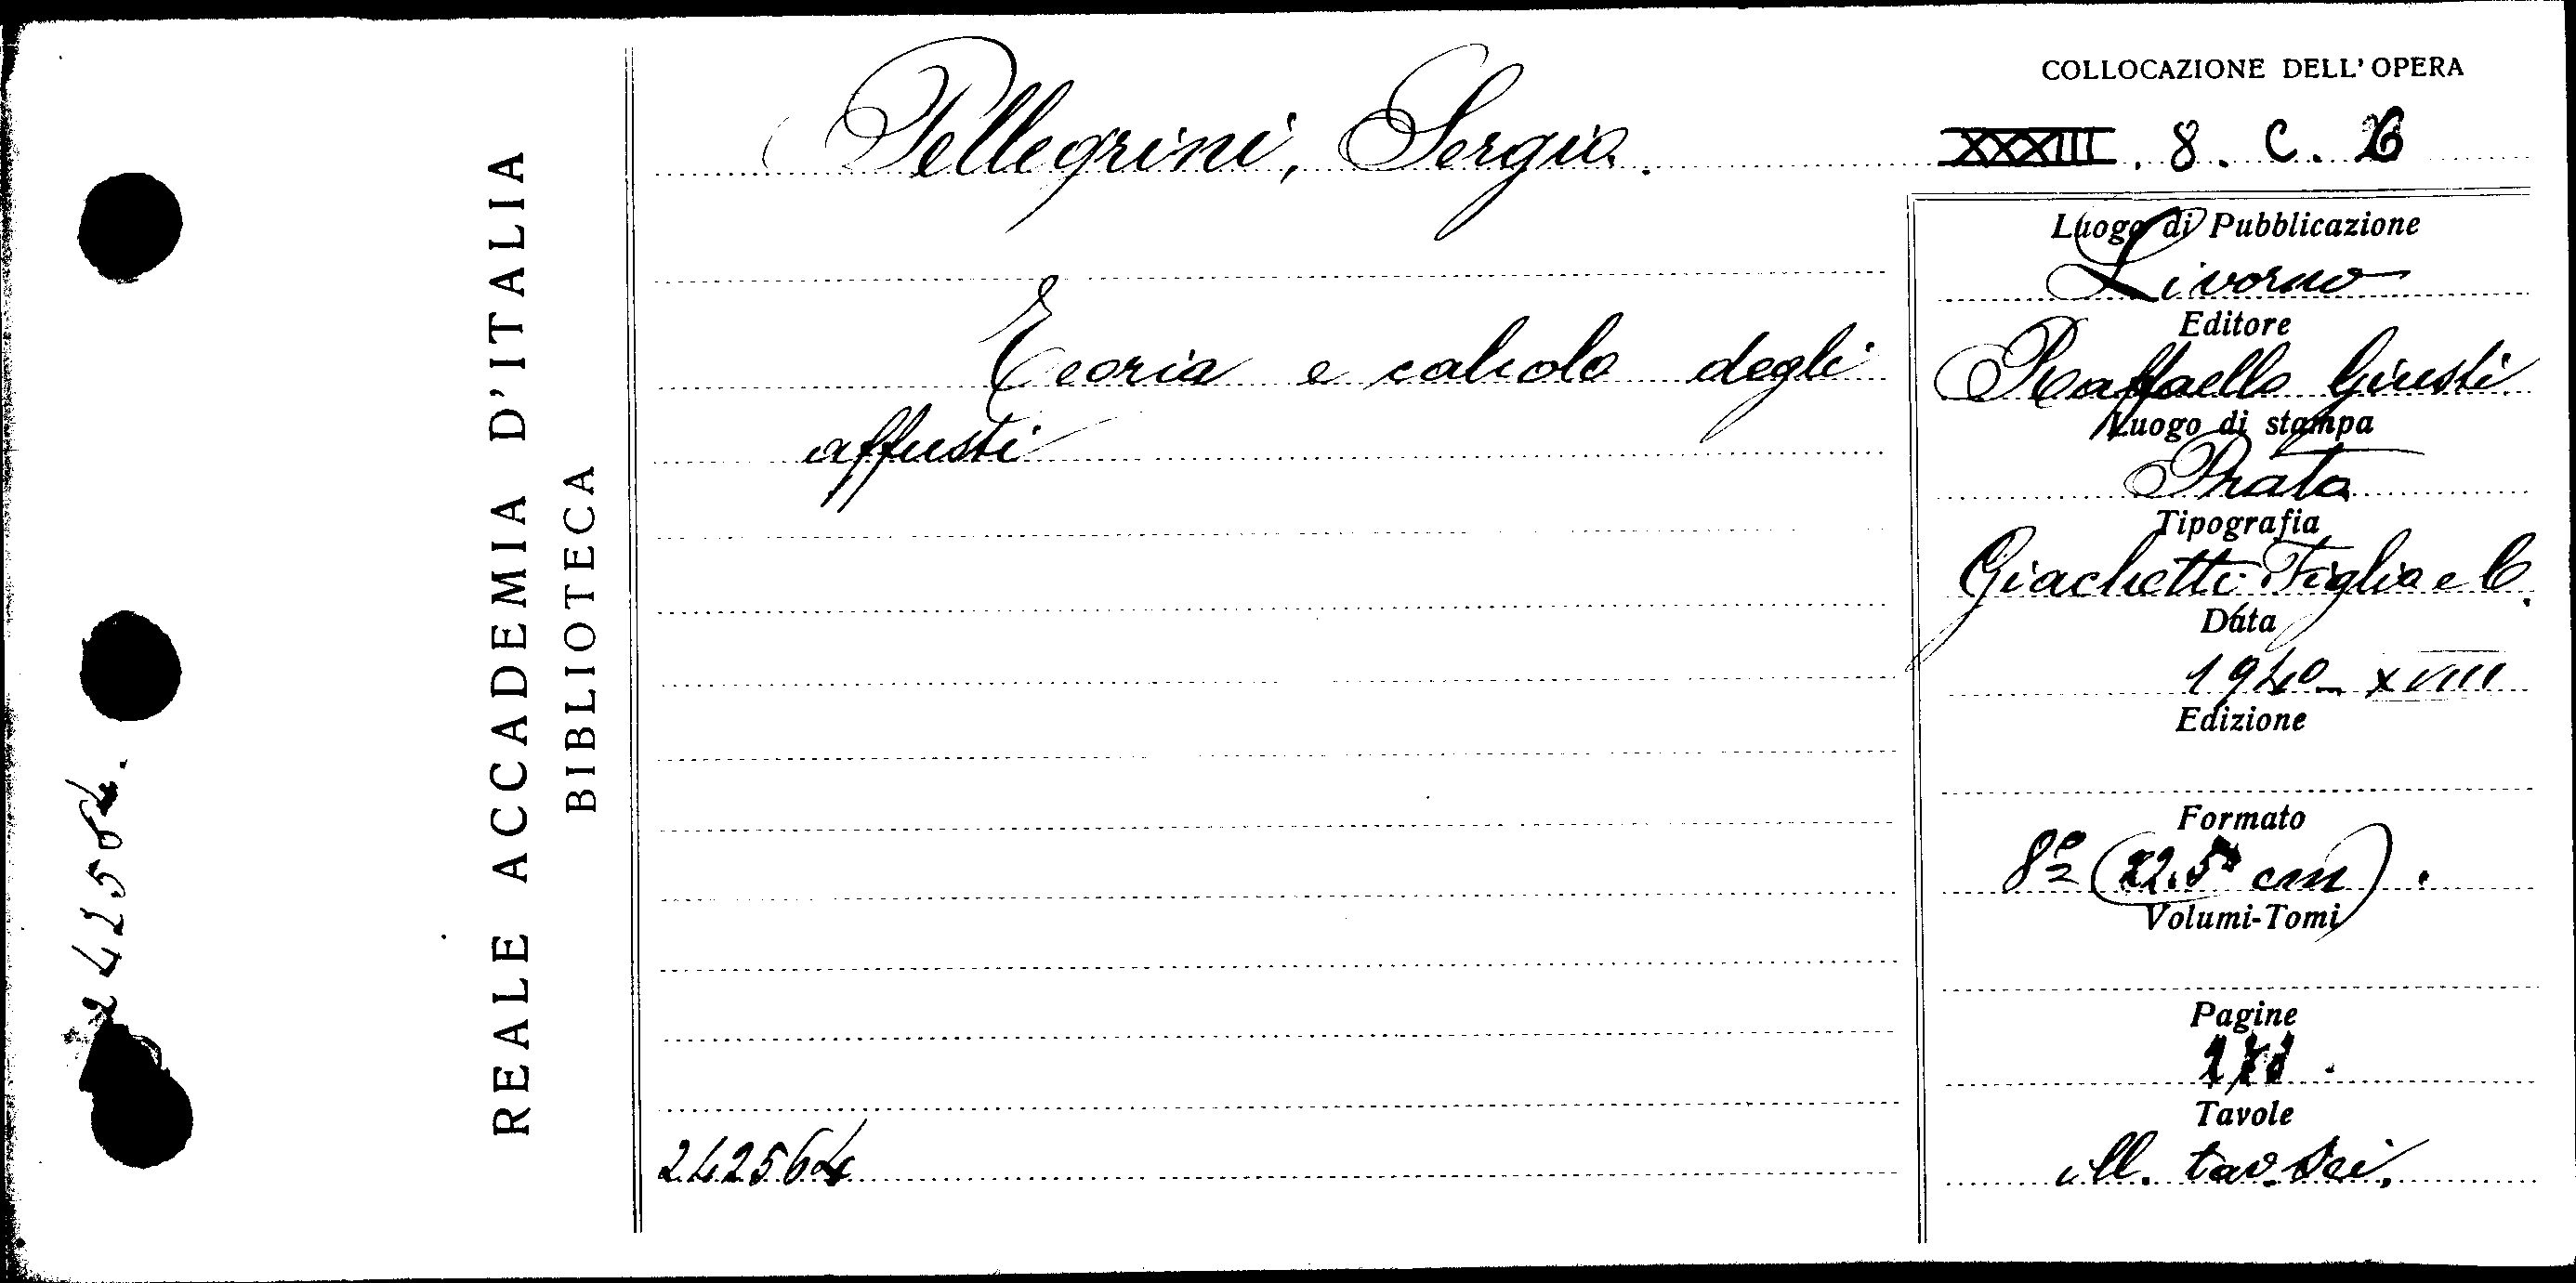 COLLOCAZIONE DELL' OPERA
Pellegrini, Sergio.
XXXIII . 8 . C . 26
Teoria e calcolo degli
affusti
242564
Luogo di Pubblicazione
Livorno
Editore
Raffaello Giusti
Luogo di stampa
Prato
Tipografia
Giachetti Figlio e C.
Data
1940 - XVIII
Edizione
Formato
8º (22.5 cm).
Volumi-Tomi
Pagine
Tavole
ill. tav. sei.
REALE ACCADEMIA D'ITALIA
BIBLIOTECA
242564.